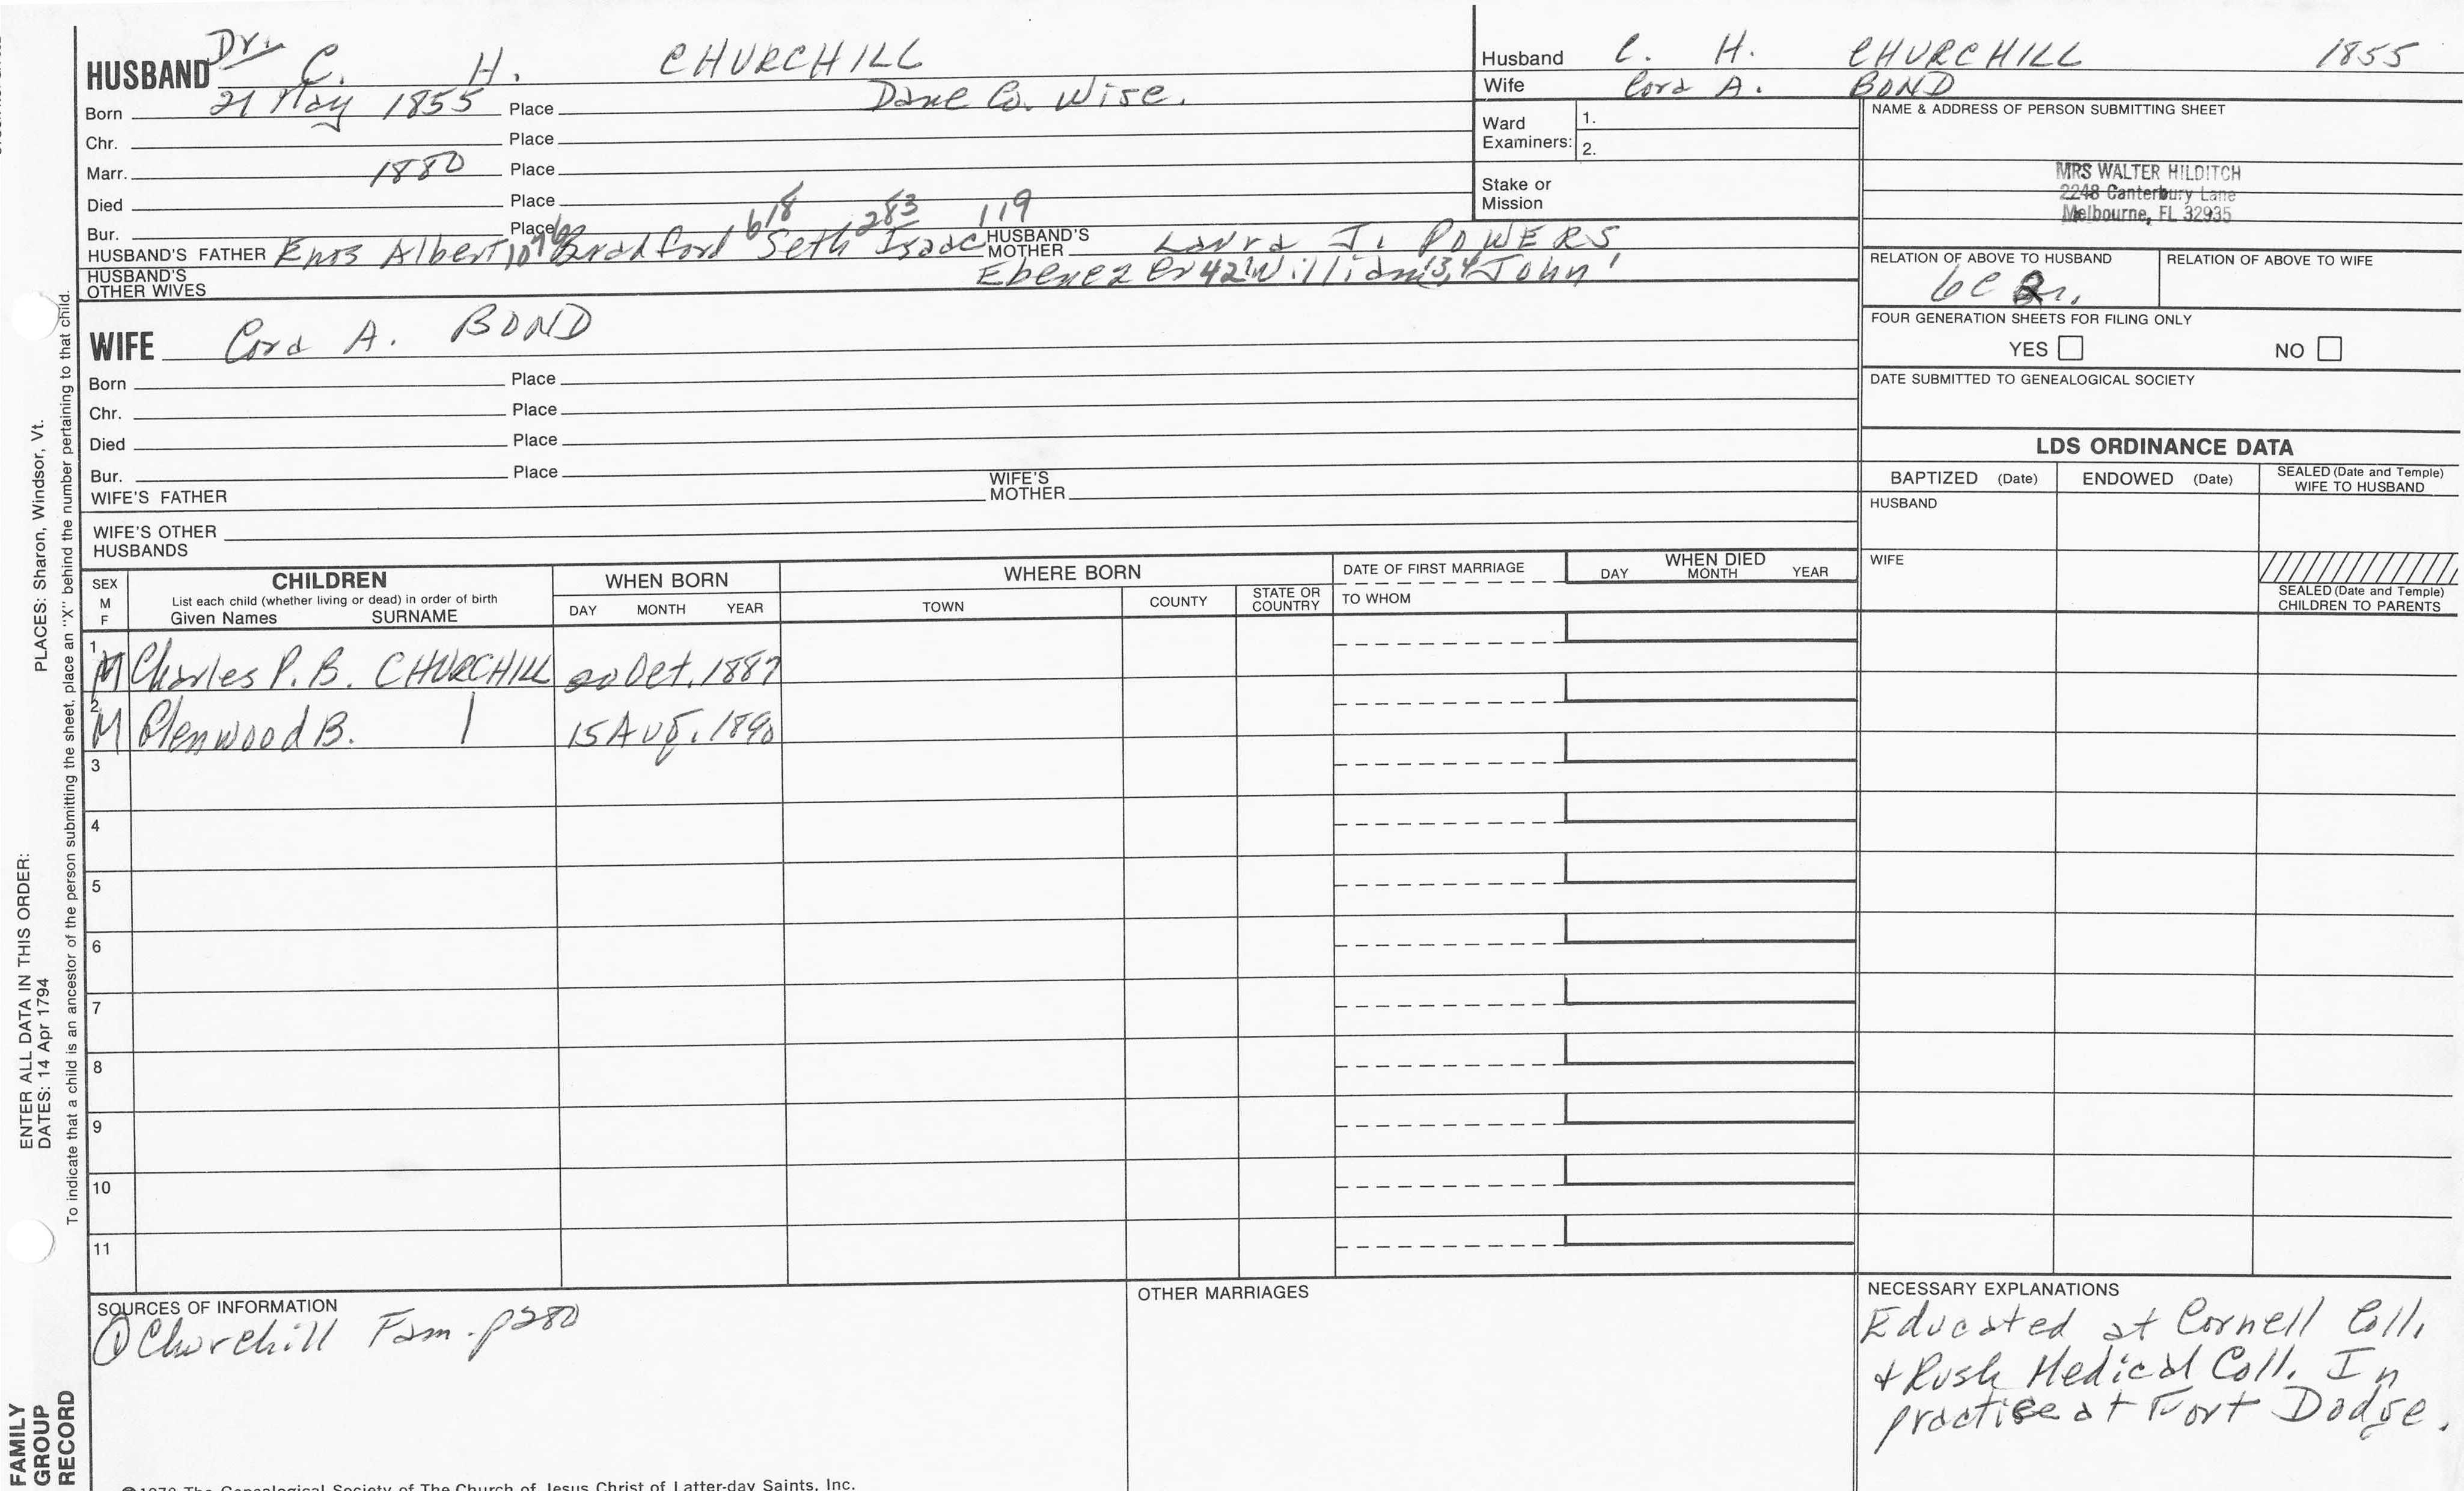 HUSBAND Dr. C. H. CHURCHILL
Born 21 May 1855 Place Dane Co. Wisc.
Chr. Place
Marr. 1880 Place
Died Place
Bur. Place
HUSBAND'S FATHER Enos Albert 1076 Bradford 618 Seth 283 Isaac 119 HUSBAND'S MOTHER Laura J. POWERS
HUSBAND'S OTHER WIVES Ebenezer 42 William 3,4 John 1
Husband C. H. CHURCHILL 1855
Wife Cora A. BOND
Ward Examiners: 1.
2.
Stake or Mission
NAME & ADDRESS OF PERSON SUBMITTING SHEET
MRS WALTER HILDITCH
2248 Canterbury Lane
Melbourne, FL 32935
RELATION OF ABOVE TO HUSBAND RELATION OF ABOVE TO WIFE
6C
FOUR GENERATION SHEETS FOR FILING ONLY
YES NO
DATE SUBMITTED TO GENEALOGICAL SOCIETY
WIFE Cora A. BOND
Born Place
Chr. Place
Died Place
Bur. Place
WIFE'S FATHER WIFE'S MOTHER
WIFE'S OTHER HUSBANDS
LDS ORDINANCE DATA
BAPTIZED (Date) ENDOWED (Date) SEALED (Date and Temple) WIFE TO HUSBAND
HUSBAND
WIFE
SEALED (Date and Temple) CHILDREN TO PARENTS
SEX M F CHILDREN List each child (whether living or dead) in order of birth Given Names SURNAME
WHEN BORN DAY MONTH YEAR
WHERE BORN TOWN COUNTY STATE OR COUNTRY
DATE OF FIRST MARRIAGE TO WHOM
WHEN DIED DAY MONTH YEAR
1 M Charles P. B. CHURCHILL 20 Oct. 1887
2 M Glenwood B. 15 Aug. 1890
3
4
5
6
7
8
9
10
11
SOURCES OF INFORMATION
① Churchill Fam. p280
OTHER MARRIAGES
NECESSARY EXPLANATIONS
Educated at Cornell Coll.
+ Rush Medical Coll. In
practise at Fort Dodge.
ENTER ALL DATA IN THIS ORDER:
DATES: 14 Apr 1794
PLACES: Sharon, Windsor, Vt.
To indicate that a child is an ancestor of the person submitting the sheet, place an "X" behind the number pertaining to that child.
FAMILY
GROUP
RECORD
The Genealogical Society of The Church of Jesus Christ of Latter-day Saints, Inc.